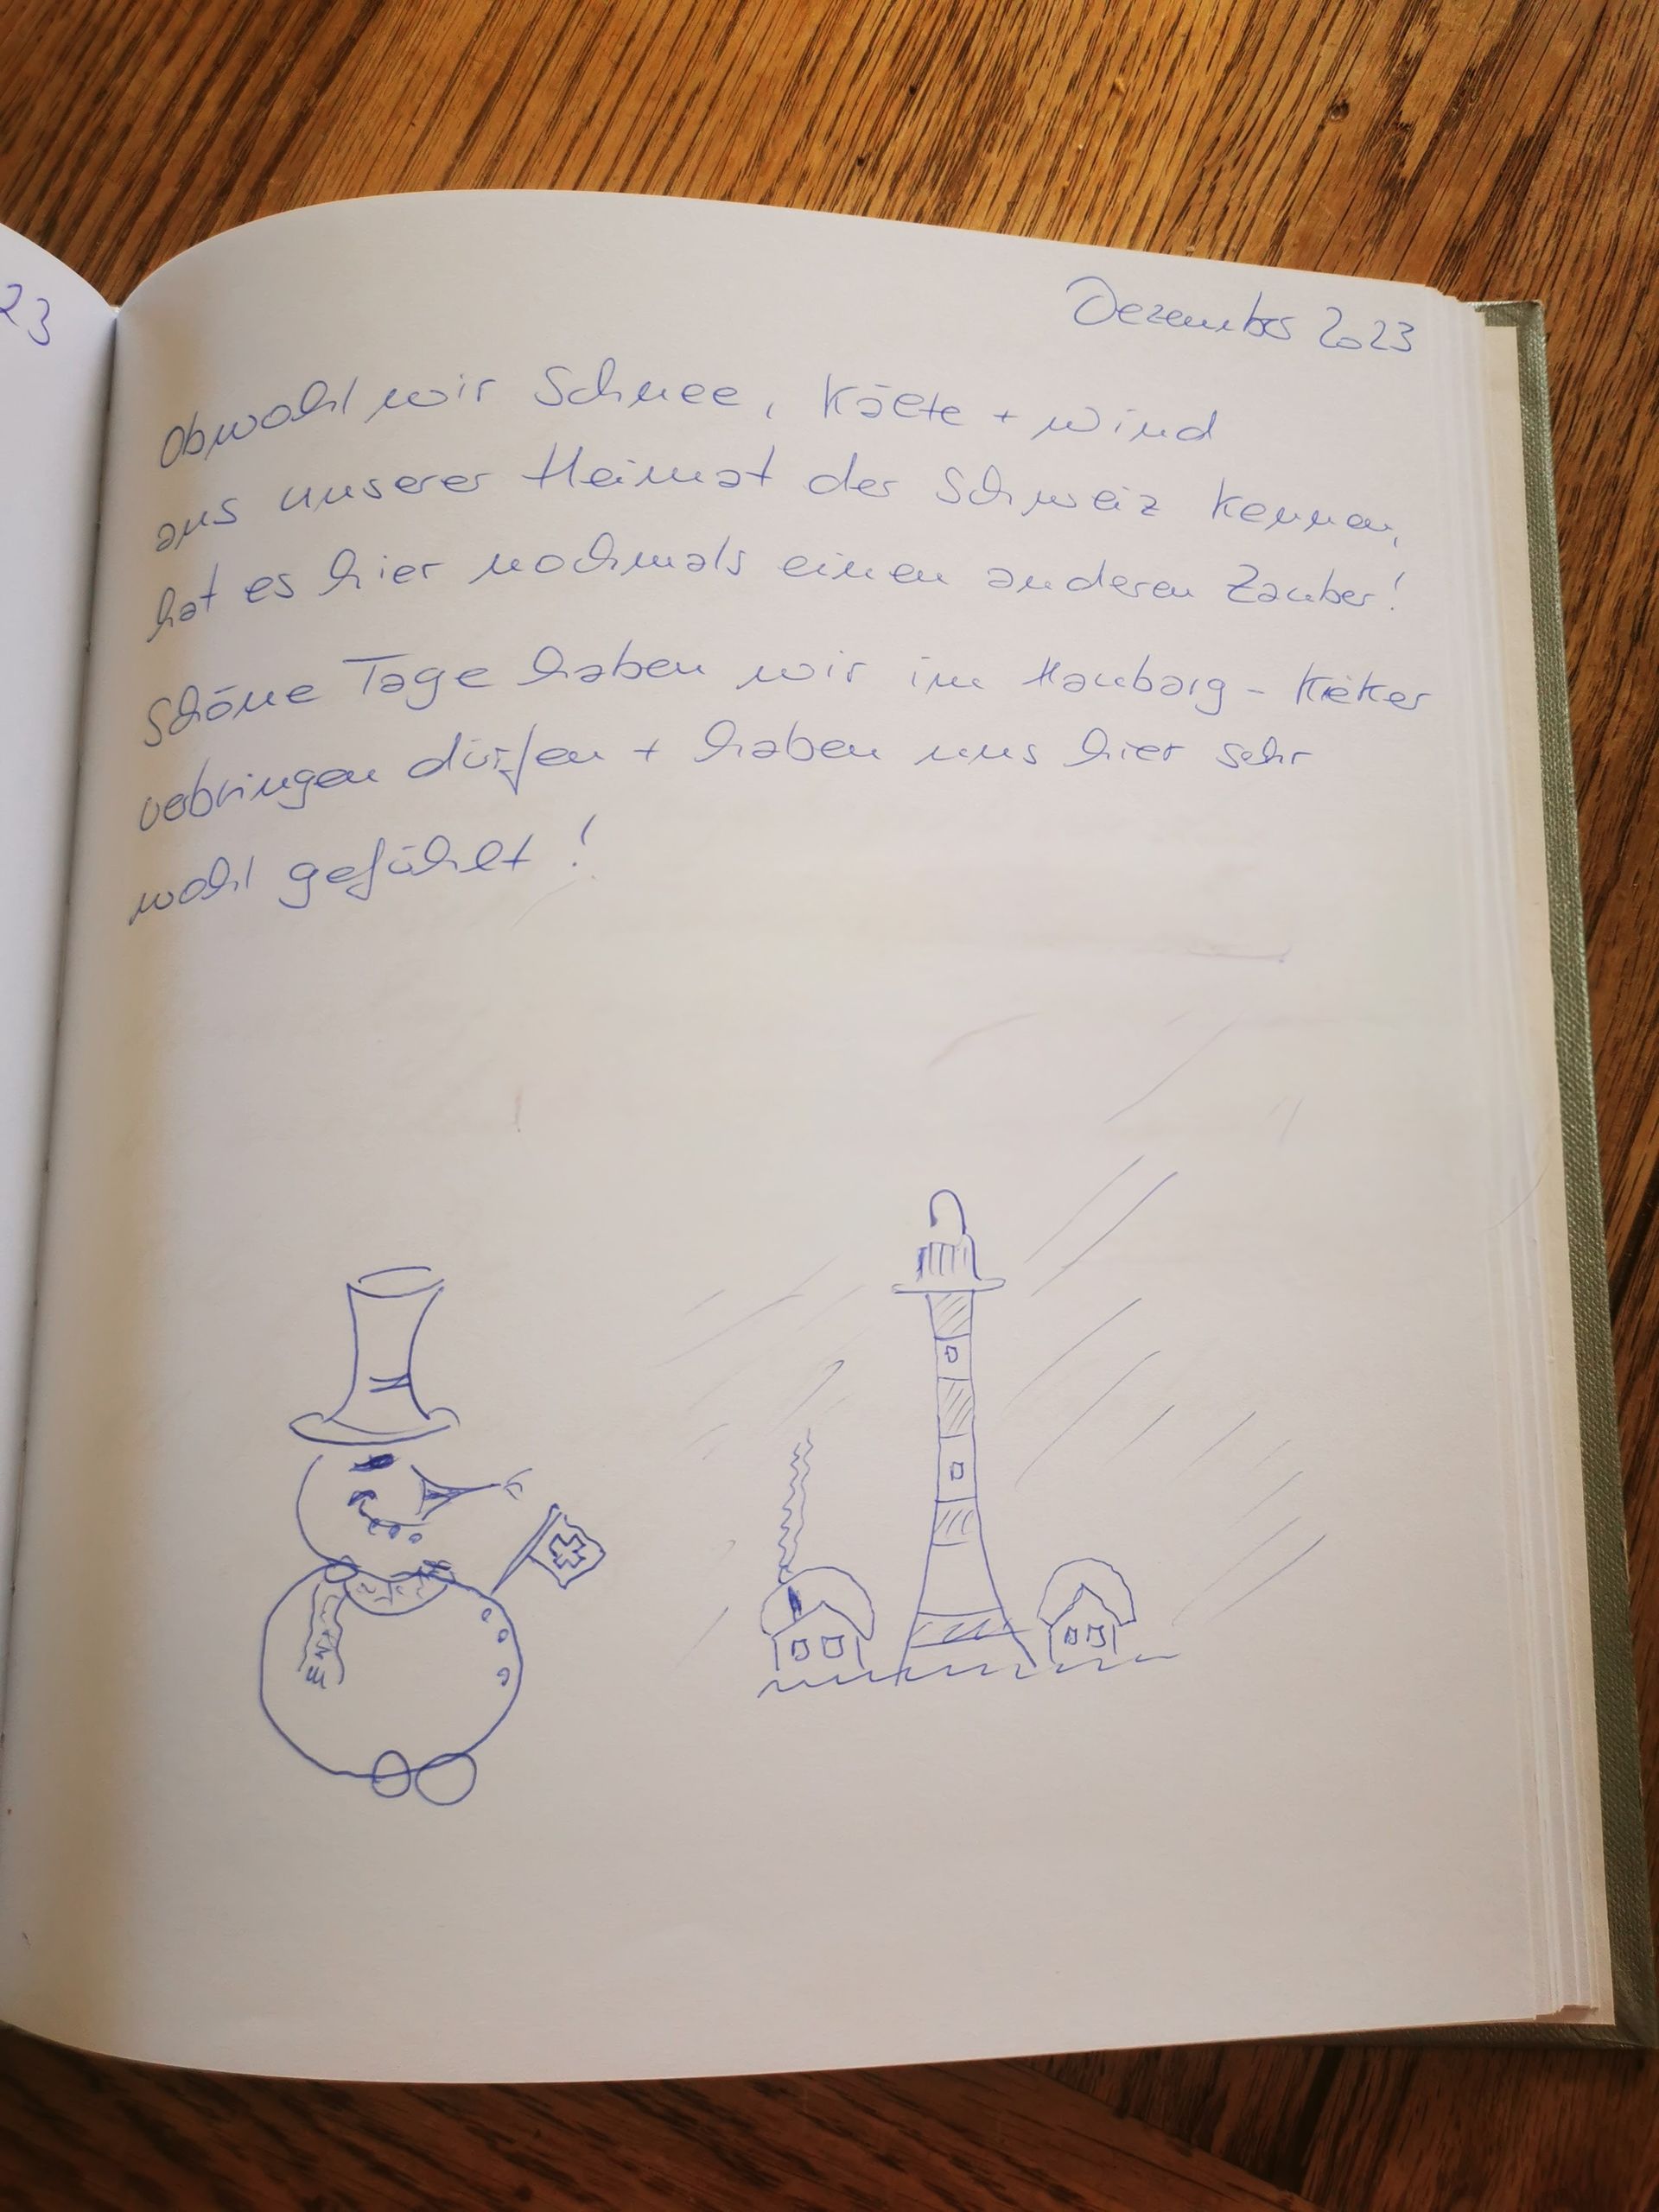 23
Dezember 2023
Obwohl wir Schnee, Kälte + Wind
aus unserer Heimat der Schweiz kennen,
hat es hier nochmals einen anderen Zauber!
Schöne Tage haben wir im Haubarg - Kieker
verbringen dürfen + haben uns hier sehr
wohl gefühlt!